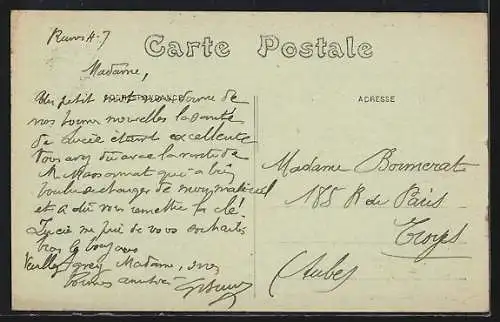 Carte Postale
Madame,
CORRESPONDANCE
ADRESSE
Un petit mot vous donne de
nos bonnes nouvelles la santé
de Lucie étant excellente
Vous avez du avoir la visite de
M. Massonnat qui a bien
voulu se charger de mon matériel
et a dû vous remettre la clé.
Lucie me prie de vous souhaiter
bien le bonjour
Veuillez agréer Madame, mes
bonnes amitiés
Madame Bonnerat
185 R de Paris
Troyes
(Aube)